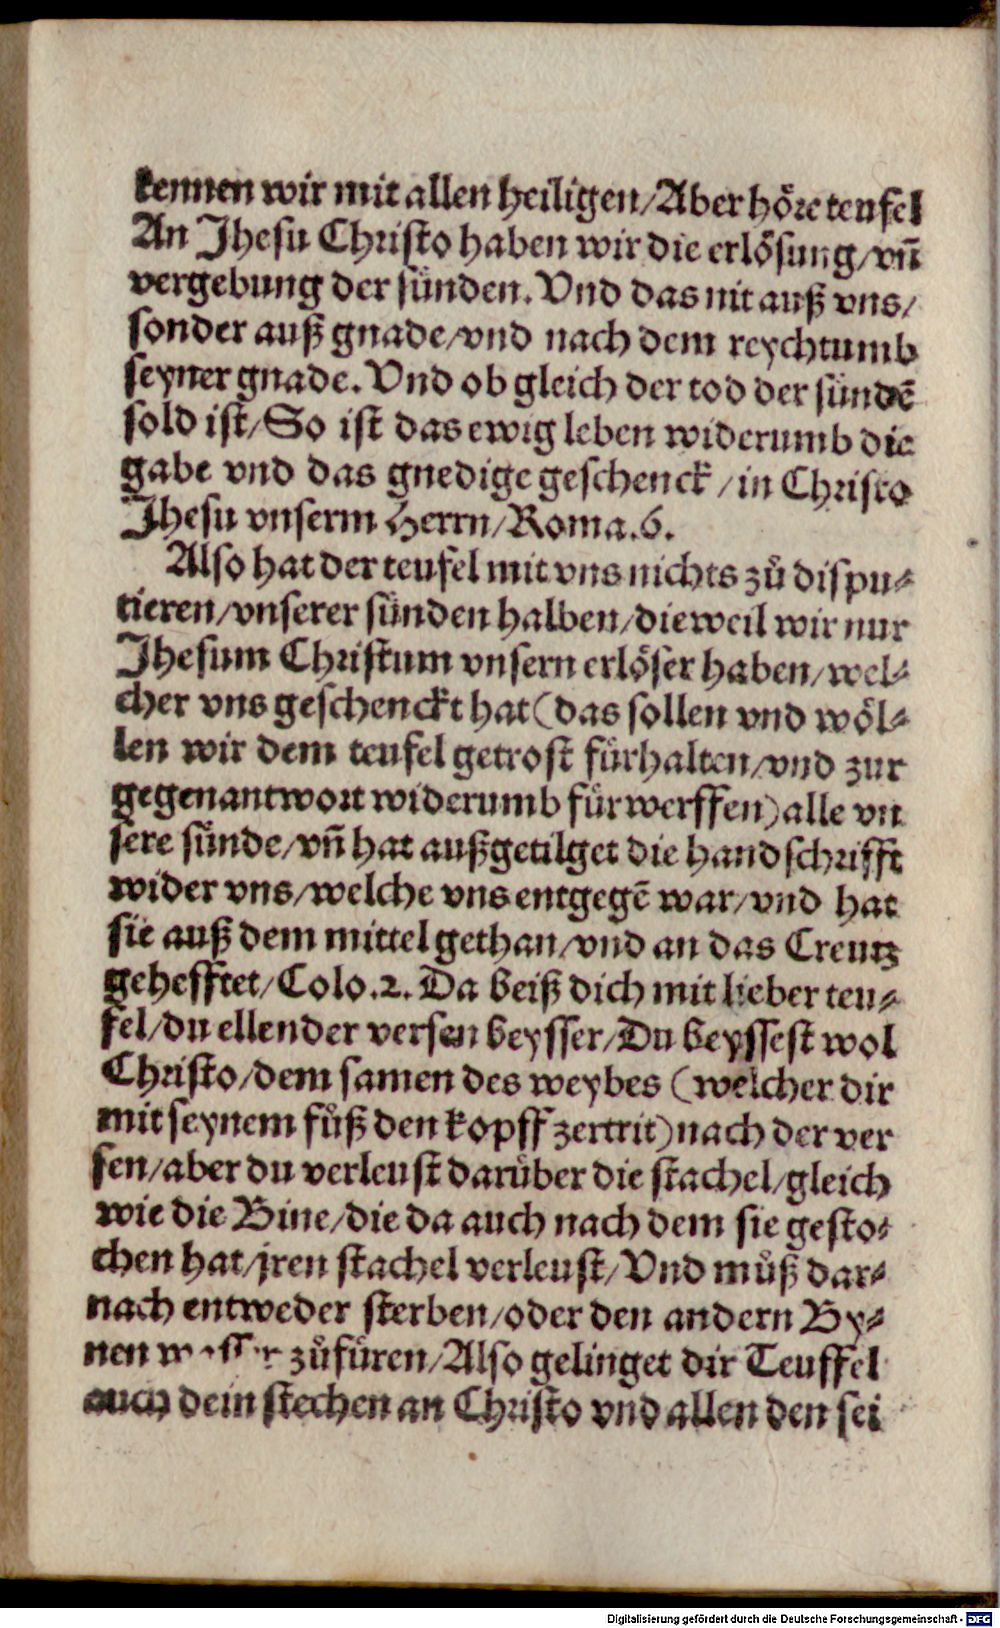 kennen wir mit allen heiligen/Aber höre teufel
An Jhesu Christo haben wir die erlösung/vñ
vergebung der sünden. Vnd das nit auß vns/
sonder auß gnade/vnd nach dem reychtumb
seyner gnade. Vnd ob gleich der tod der sündẽ
sold ist/So ist das ewig leben widerumb die
gabe vnd das gnedige geschenck/in Christo
Jhesu vnserm Herrn/Roma.6.
Also hat der teufel mit vns nichts zů dispu⸗
tieren/vnserer sünden halben/dieweil wir nur
Jhesum Christum vnsern erlöser haben/wel⸗
cher vns geschenckt hat(das sollen vnd wöl⸗
len wir dem teufel getrost fürhalten/vnd zur
gegenantwort widerumb fürwerffen)alle vn
sere sünde/vñ hat außgetilget die handschrifft
wider vns/welche vns entgegẽ war/vnd hat
sie auß dem mittel gethan/vnd an das Creutz
gehefftet/Colo.2. Da beiß dich mit lieber teu⸗
fel/du ellender versen beysser/Du beyssest wol
Christo/dem samen des weybes (welcher dir
mit seynem fůß den kopff zertrit)nach der ver
sen/aber du verleust darüber die stachel/gleich
wie die Bine/die da auch nach dem sie gesto⸗
chen hat/jren stachel verleust/Vnd můß dar⸗
nach entweder sterben/oder den andern By⸗
nen zůfüren/Also gelinget dir Teuffel
auch dein stechen an Christo vnd allen den sei
Digitalisierung gefördert durch die Deutsche Forschungsgemeinschaft - DFG